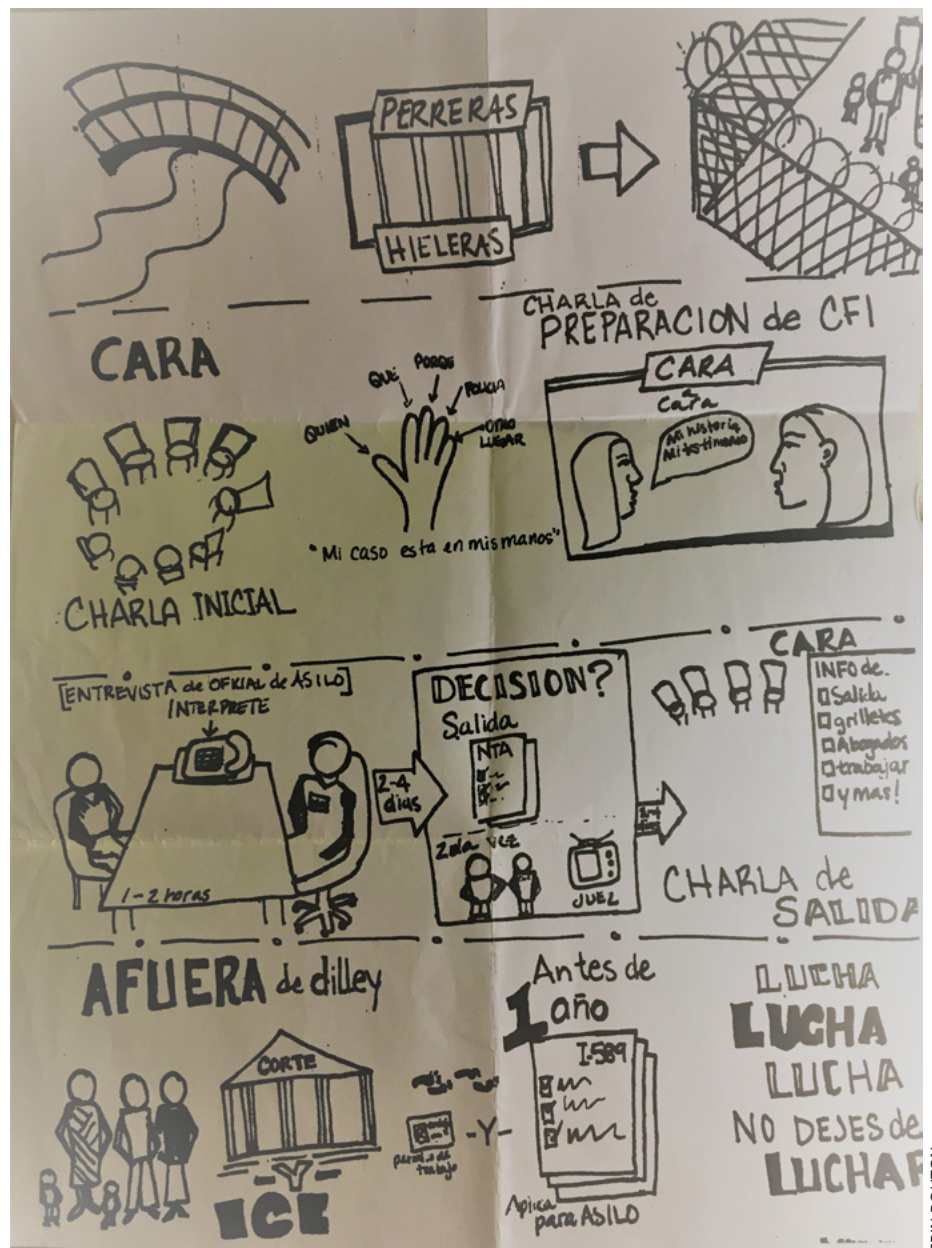 PERRERAS
HIELERAS
CARA
CHARLA de
PREPARACION de CFI
QUIEN
QUÉ
PORQE
POLICIA
OTRO
LUGAR
"Mi caso esta en mis manos"
CARA
a
Cara
Mi historia
Mi testimonio
CHARLA INICIAL
[ENTREVISTA de OFICIAL de ASILO]
INTERPRETE
1-2 horas
2-4
dias
DECISION?
Salida
NTA
2da vez
JUEZ
CARA
INFO de.
Salida
grilletes
Abogados
trabajar
y mas!
CHARLA de
SALIDA
AFUERA de dilley
CORTE
-Y-
ICE
permiso de
trabajo
-Y-
Antes de
1 año
I-589
Aplica
para ASILO
LUCHA
LUCHA
LUCHA
NO DEJES de
LUCHAR